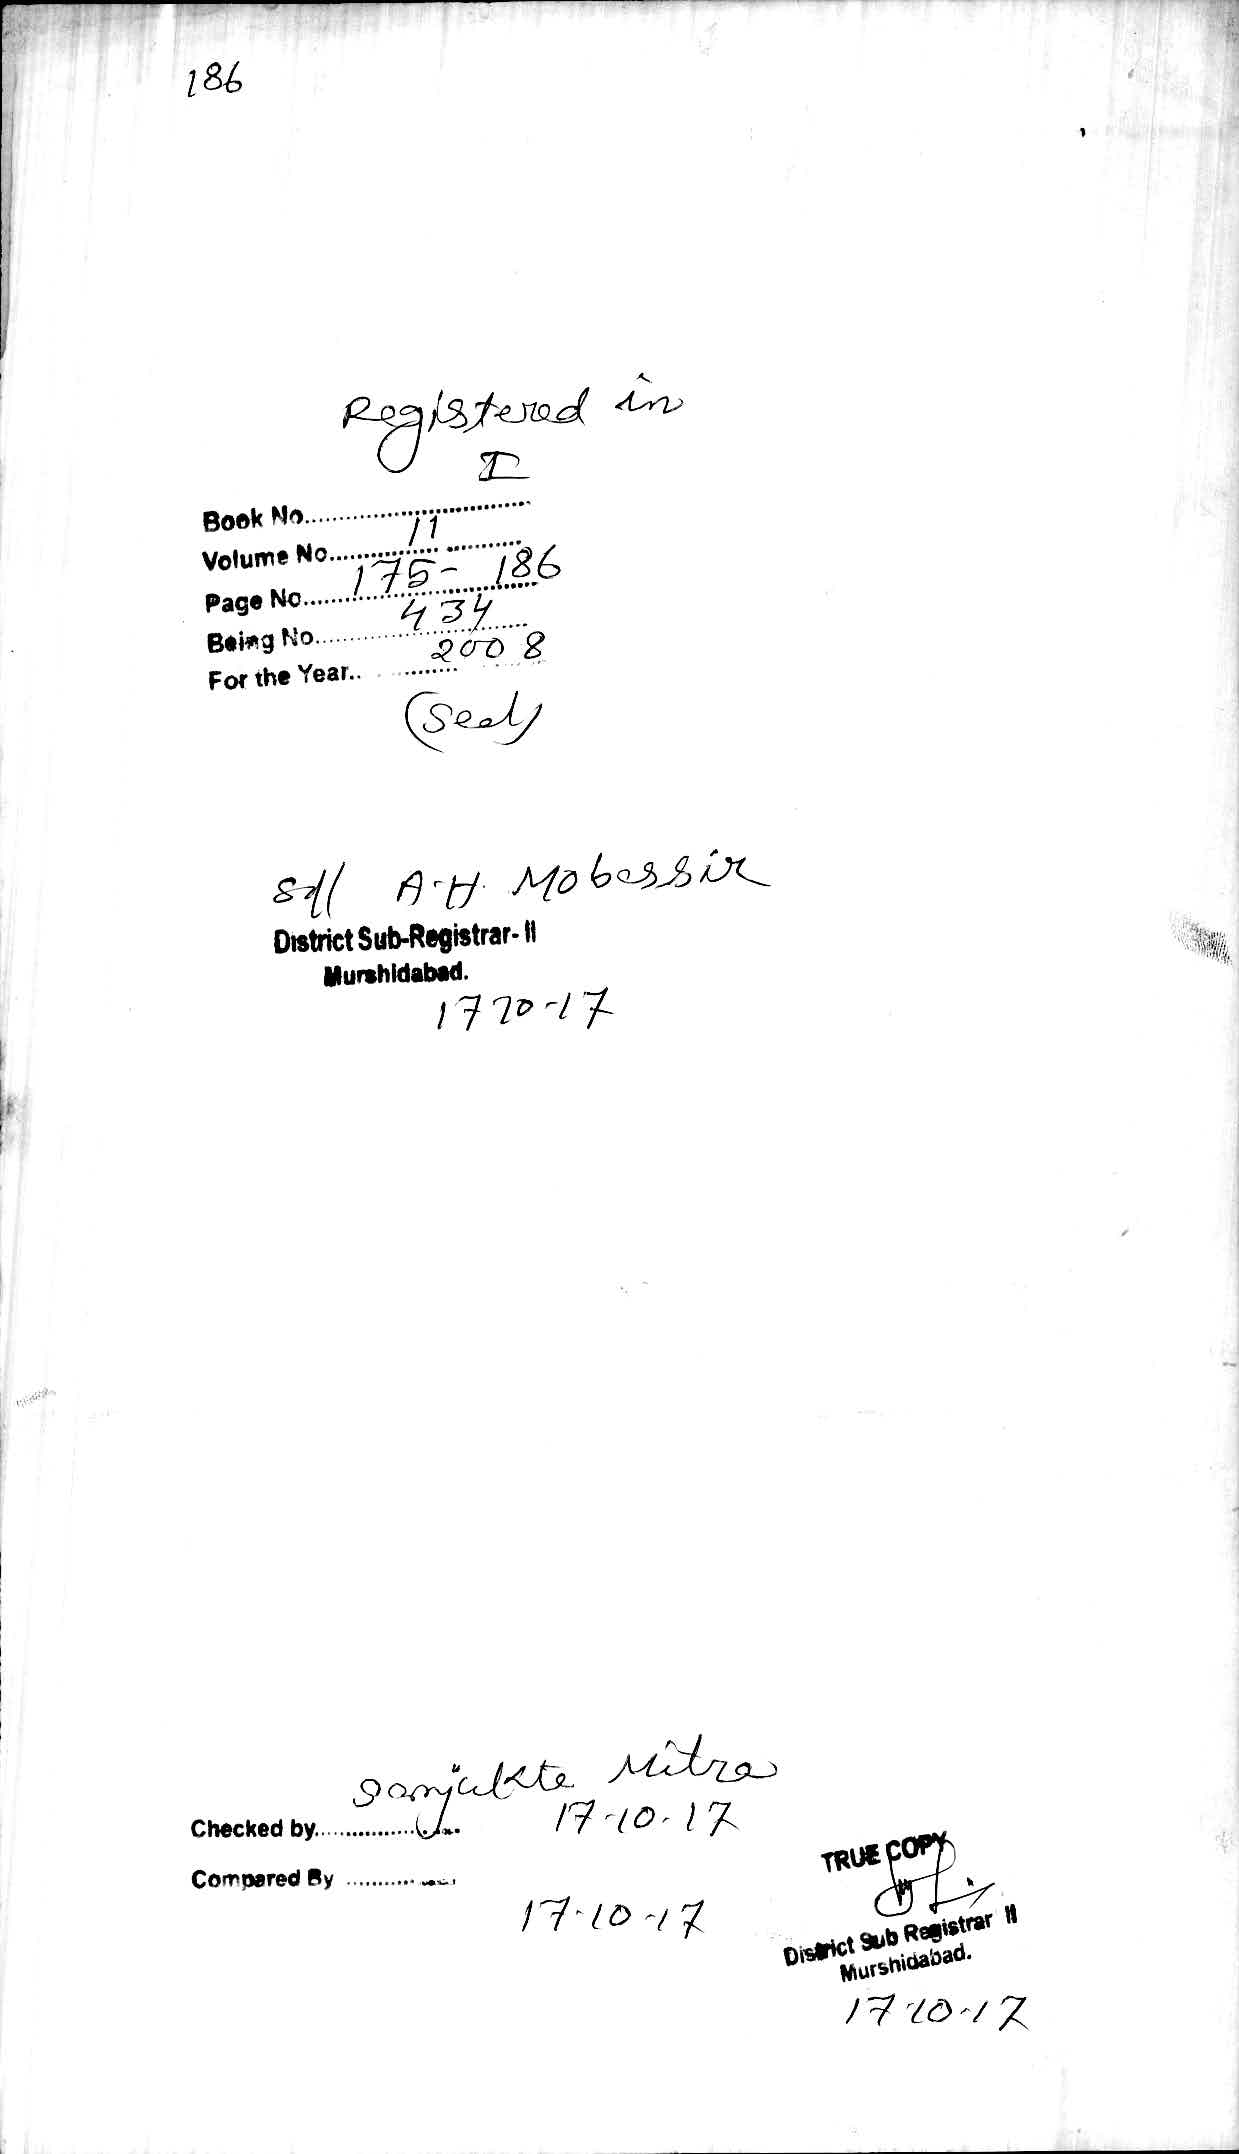 186
Registered in
I
Book No..............................
11
Volume No..........................
175- 186
Page No..............................
434
Being No............................
2008
For the Year.. ..........
(Seal)
Sd/ A.H. Mobassir
District Sub-Registrar- II
Murshidabad.
17-10-17
Sanjukta Mitra
Checked by....................
17-10-17
Compared By ....................
17-10-17
TRUE COPY
District Sub Registrar II
Murshidabad.
17-10-17